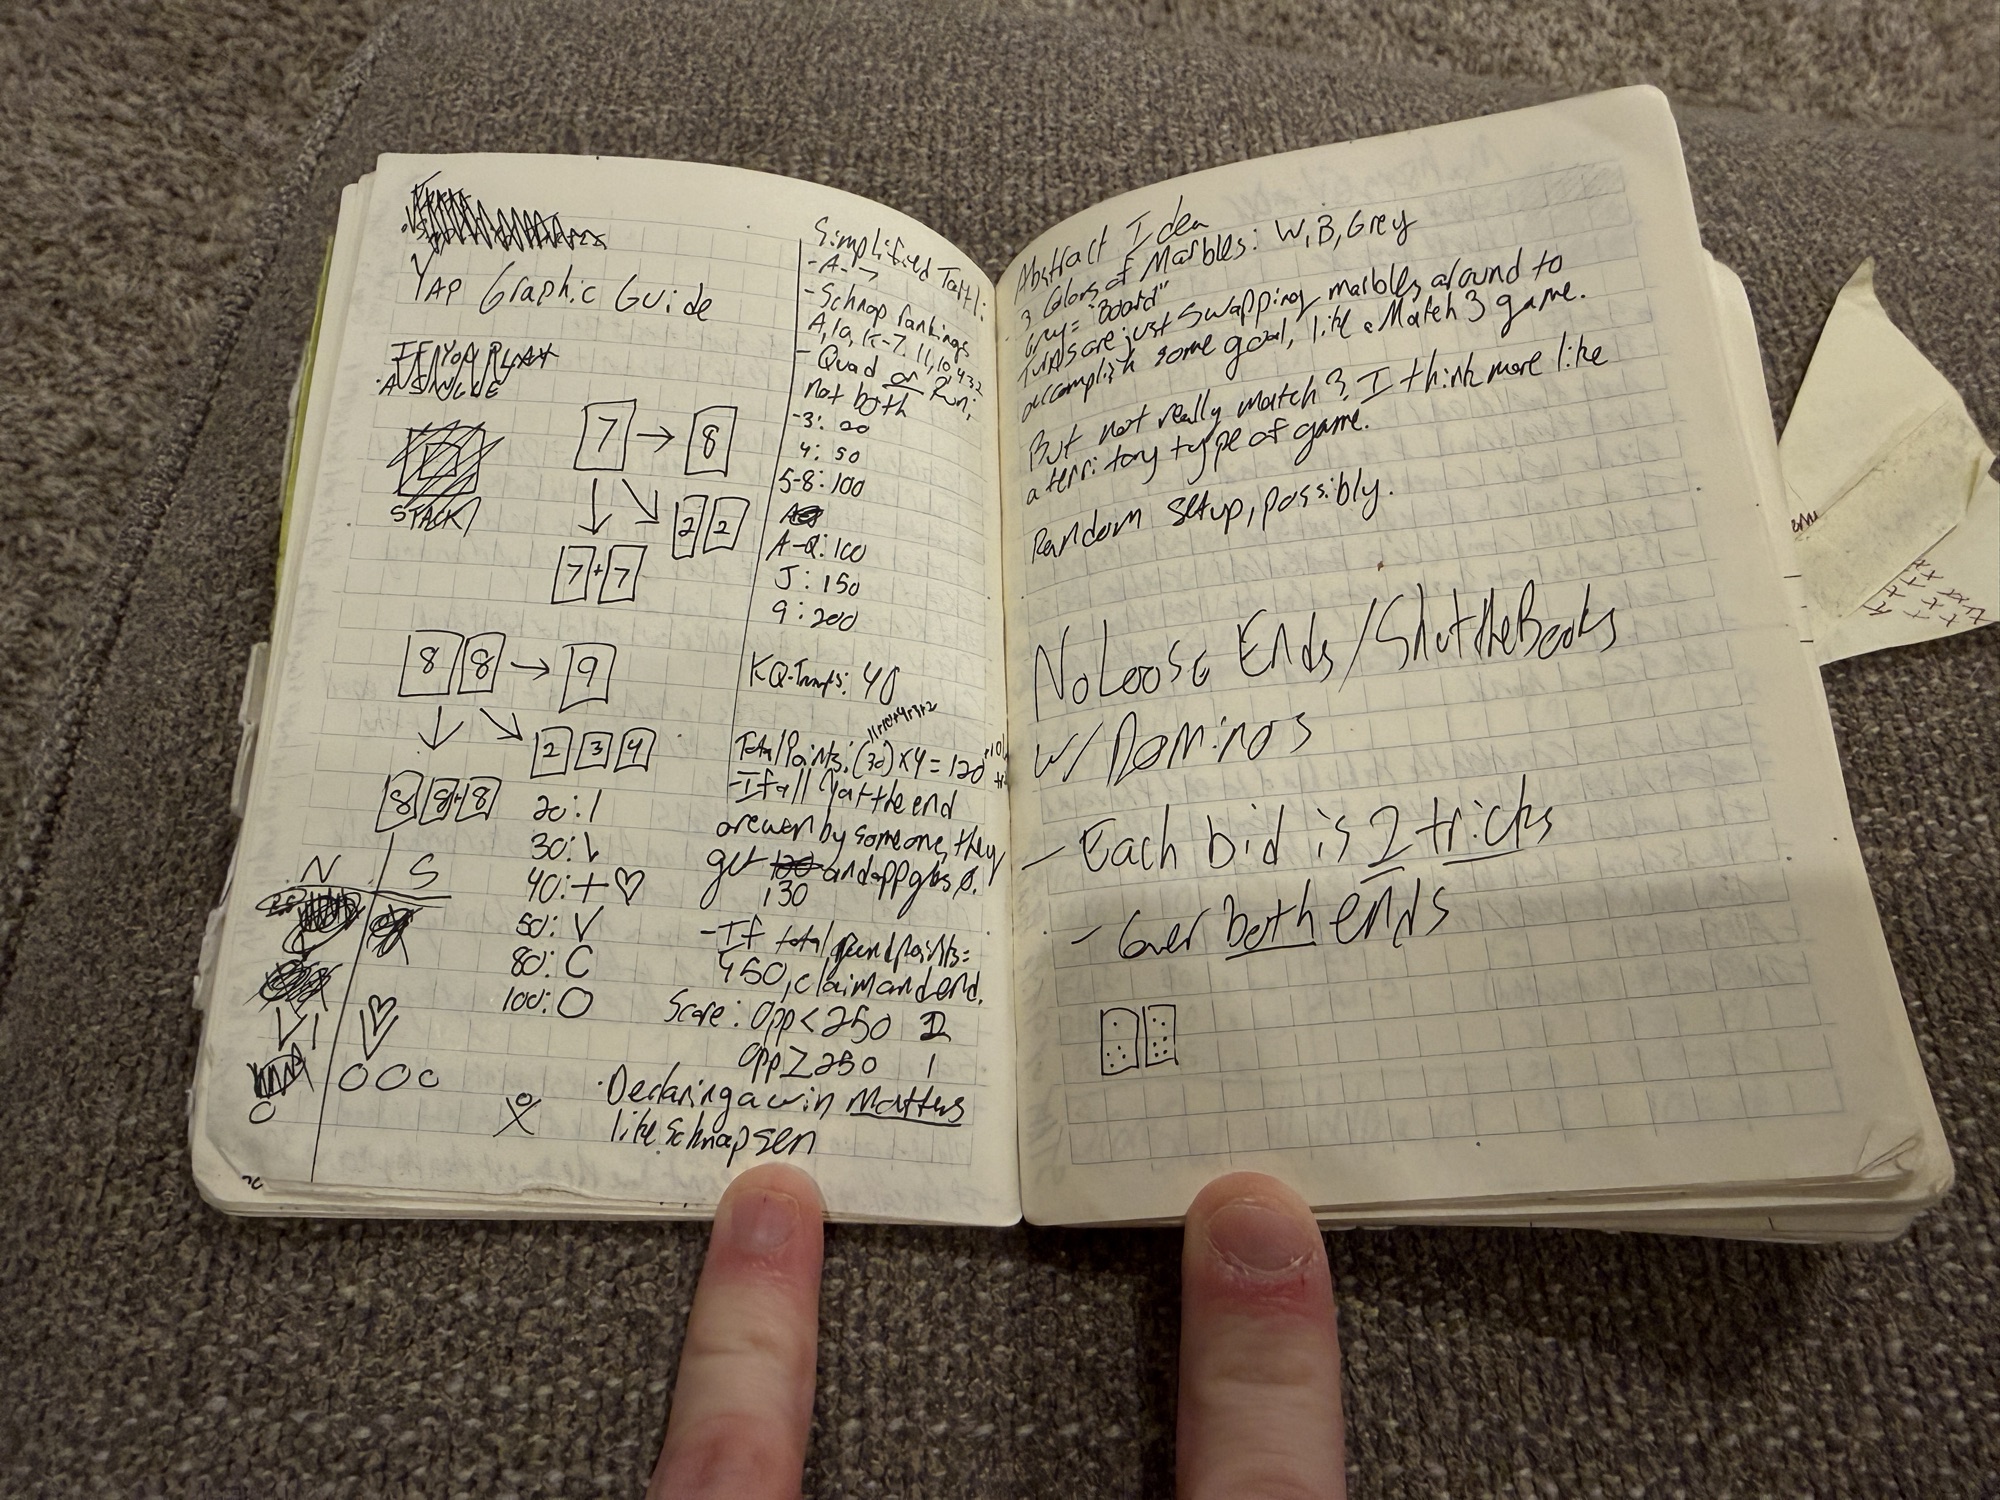 YAP Graphic Guide
IF YOU PLAY
A SINGLE
STACK
7 → 8
2 2
7 + 7
8 8 → 9
2 3 4
8 8 + 8
20: 1
30: \
40: + ♡
50: V
80: C
100: O
N S
V 1
OOO
O
Simplified
- A - 7
- Schnap rankings
A, 10, K-7. 11, 10 4 3 2
- Quad or Run;
not both
- 3: 20
4: 50
5-8: 100
A-Q: 100
J: 150
9: 200
KQ-Trumps: 40
11+10+4+3+2
Total Points: (30) x 4 = 120
- If all at the end
are won by someone, they
get 120 and opp gets 0.
130
- If total points =
450, claim and end.
Score: Opp < 250 2
Opp ≥ 250 1
· Declaring a win Matters
like Schnapsen
Abstract Idea
3 Colors of Marbles: W, B, Grey
Grey = "Board"
Turns are just swapping marbles around to
accomplish some goal, like a Match 3 game.
But not really match 3, I think more like
a territory type of game.
Random setup, possibly.
No Loose Ends/Shut the Books
w/ Dominos
- Each bid is 2 tricks
- Cover both ends